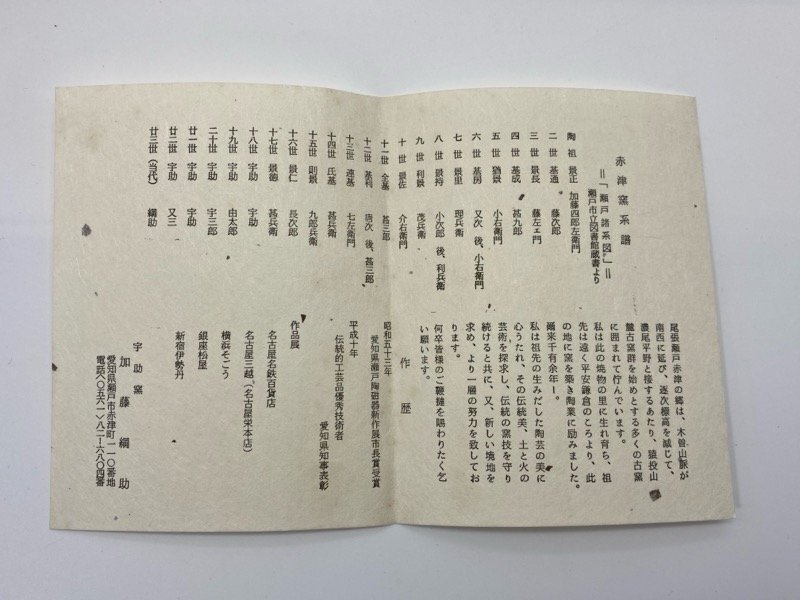 赤津窯系譜
=「瀬戸諸系図」=
瀬戸市立図書館蔵書より
陶祖 景正 加藤四郎左衛門
二世 基通 藤次郎
三世 景長 藤左ェ門
四世 基成 甚九郎
五世 猶景 小右衛門
六世 基房 又次 後、小右衛門
七世 景里 理兵衛
八世 景持 小次郎 後、利兵衛
九世 利景 茂兵衛
十世 景佐 介右衛門
十一世 全基 甚三郎
十二世 基利 唐次 後、甚三郎
十三世 連基 七左衛門
十四世 氏基 甚兵衛
十五世 則景 九郎兵衛
十六世 景仁 長次郎
十七世 景徳 甚兵衛
十八世 宇助 宇助
十九世 宇助 由太郎
二十世 宇助 宇三郎
廿一世 宇助 宇助
廿二世 宇助 又三
廿三世(当代) 綱助
尾張瀬戸赤津の郷は、木曽山脈が
南西に延び、逐次標高を減じて、
濃尾平野と接するあたり、猿投山
麓古窯群を始めとする多くの古窯
に囲まれて佇んでいます。
私は此の焼物の里に生れ育ち、祖
先は遠く平安鎌倉のころより、此
の地に窯を築き陶業に励みました。
爾来千有余年ー。
私は祖先の生みだした陶芸の美に
心うたれ、その伝統美、土と火の
芸術を探求し、伝統の窯技を守り
続けると共に、又、新しい境地を
求め、より一層の努力を致してお
ります。
何卒皆様のご鞭撻を賜わりたく乞
い願います。
作歴
昭和五十三年
愛知県瀬戸陶磁器新作展市長賞受賞
平成十年
伝統的工芸品優秀技術者
愛知県知事表彰
作品展
名古屋名鉄百貨店
名古屋三越(名古屋栄本店)
横浜そごう
銀座松屋
新宿伊勢丹
宇助窯
加藤綱助
愛知県瀬戸市赤津町一一〇番地
電話〈〇五六一〉八二-六八〇四番